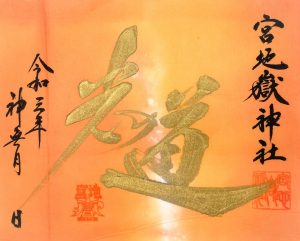 宮地嶽神社
光道
令和三年
神無月
日